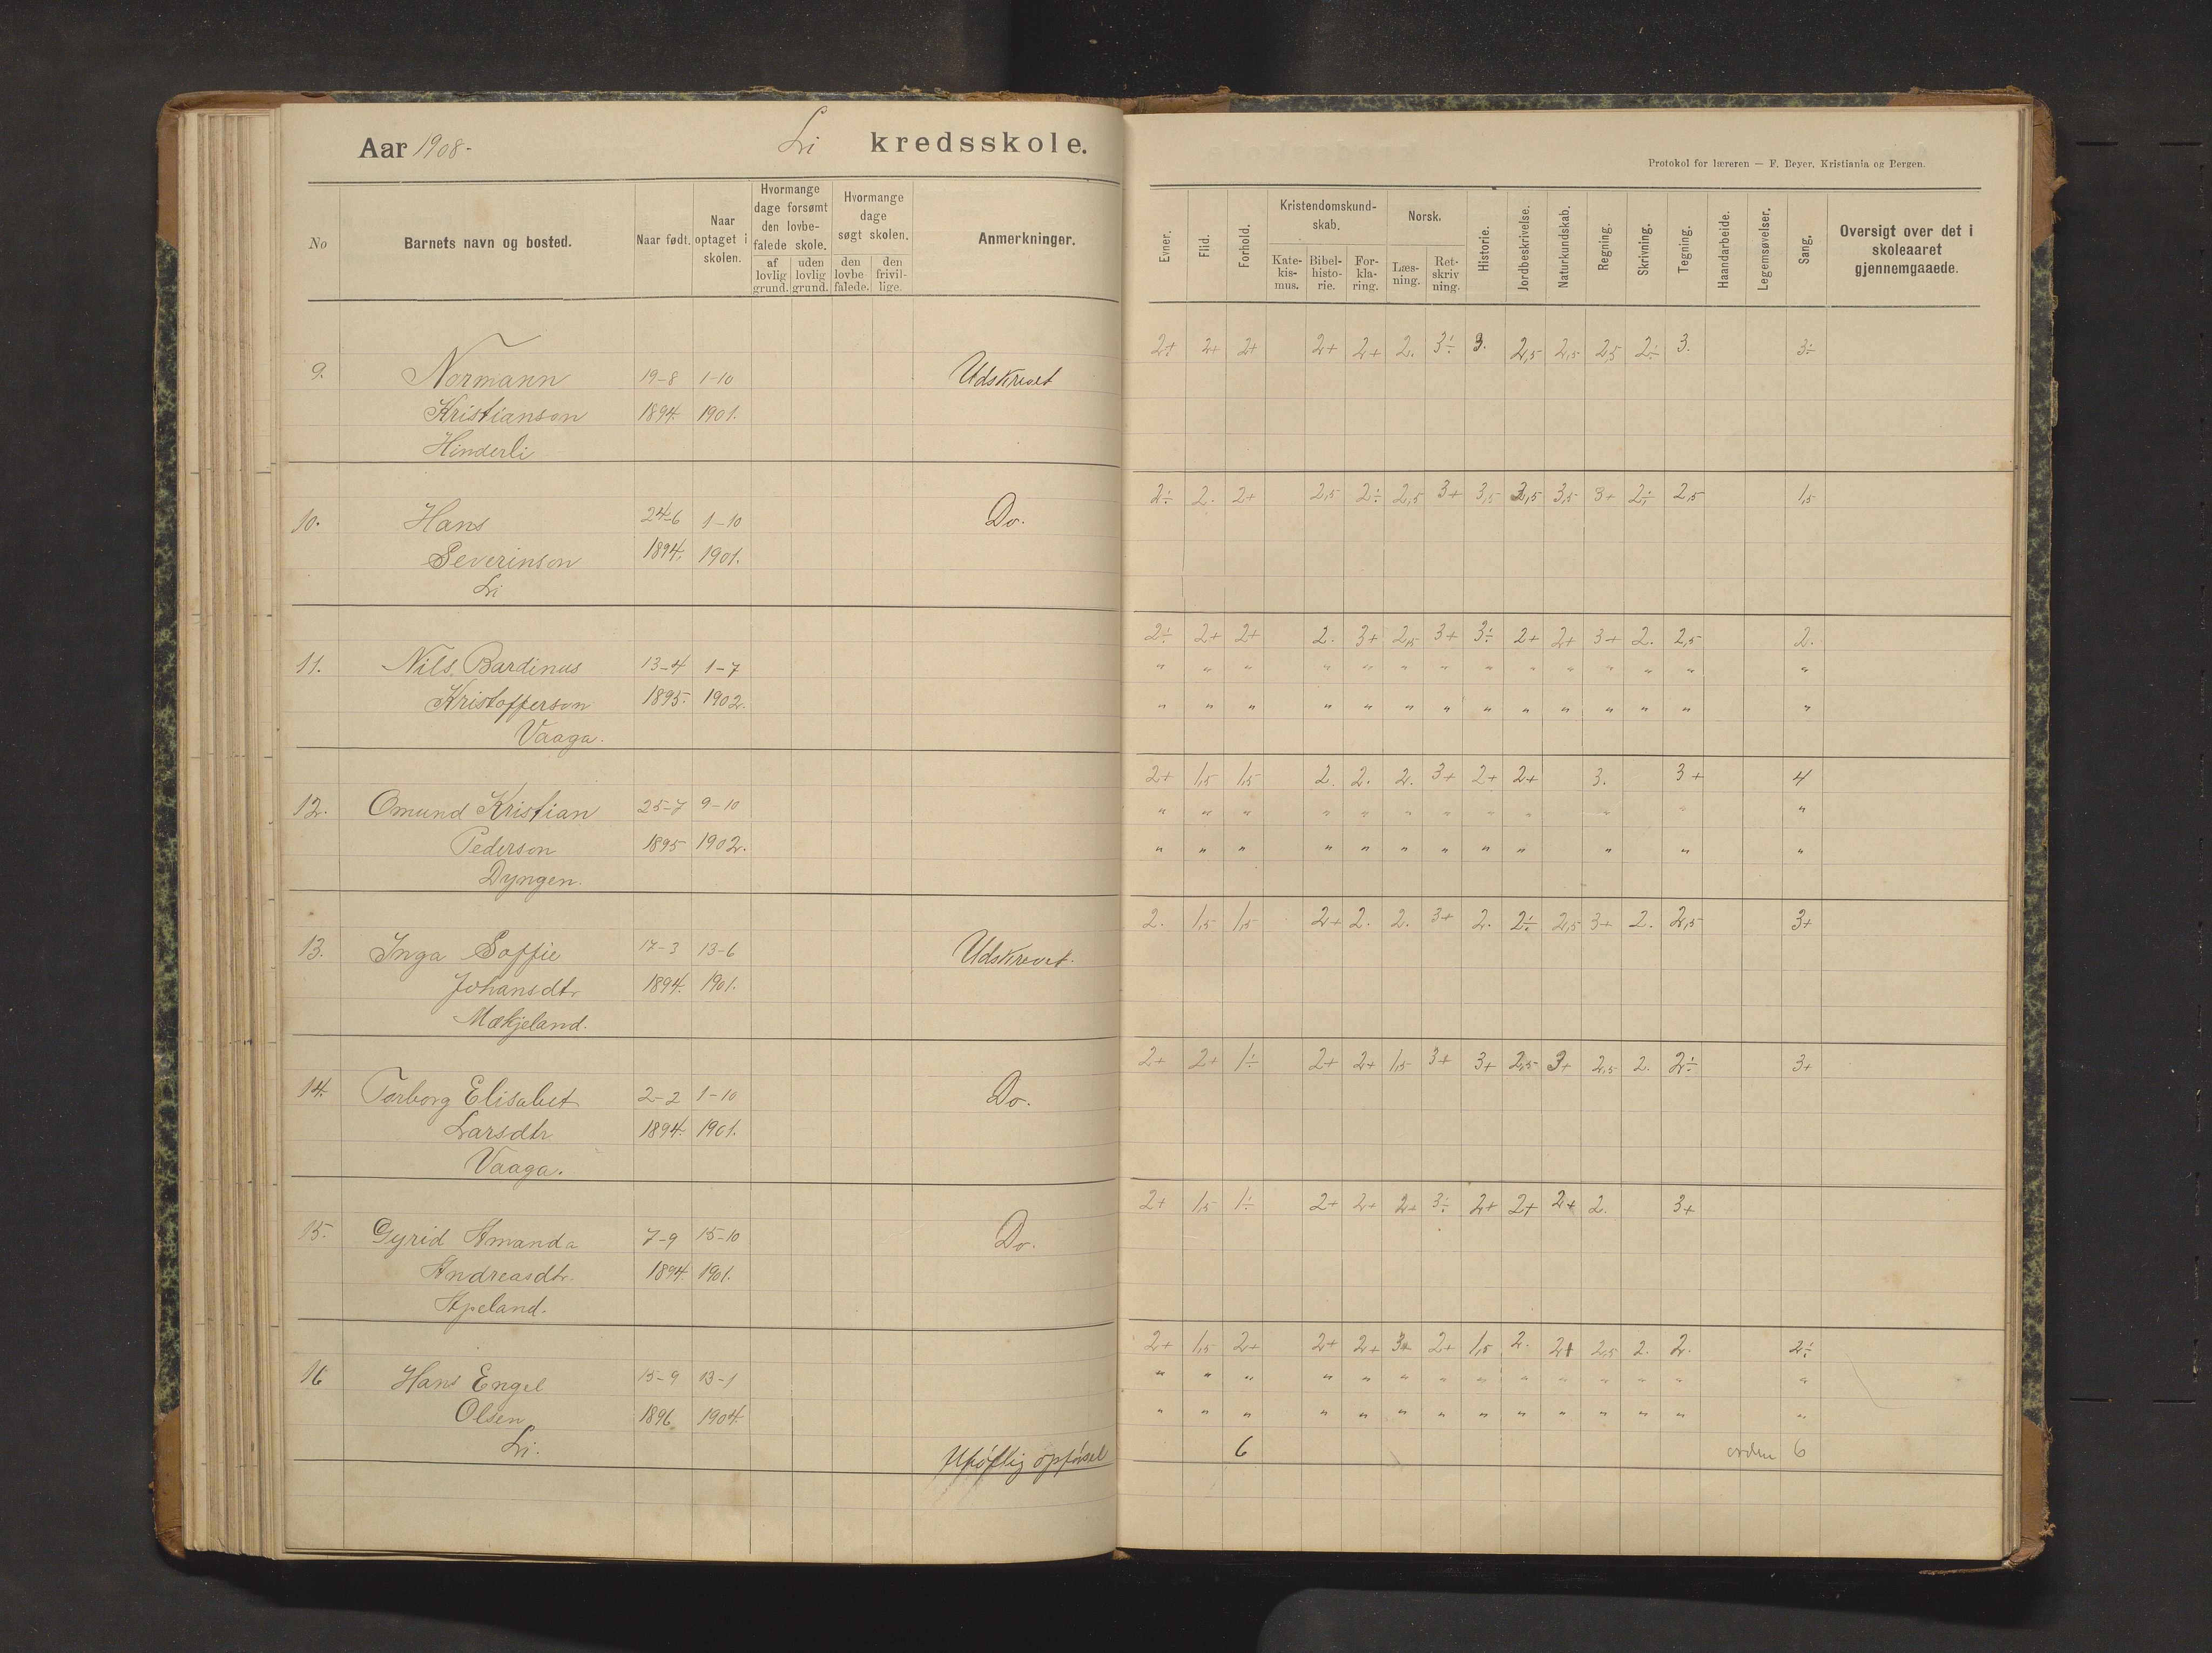 Aar 1908-
Li kredsskole.
Protokol for læreren — F. Beyer, Kristiania og Bergen.
No
Barnets navn og bosted.
Naar født.
Naar optaget i skolen.
Hvormange dage forsømt den lovbefalede skole.
af lovlig grund.
uden lovlig grund.
Hvormange dage søgt skolen.
den lovbe falede.
den frivil- lige.
Anmerkninger.
Evner.
Flid.
Forhold.
Kristendomskund- skab.
Kate- kis- mus.
Bibel- histo- rie.
For- kla- ring.
Norsk.
Læs- ning.
Ret- skriv ning.
Historie.
Jordbeskrivelse.
Naturkundskab.
Regning.
Skrivning.
Tegning.
Haandarbeide.
Legemsøvelser.
Sang.
Oversigt over det i skoleaaret gjennemgaaede.
2+ 2+ 2+ 2+ 2+ 2. 3÷ 3. 2,5 2,5 2,5 2÷ 3. 3÷
9. Normann 19-8 1-10 Udskrevet
Kristianson 1894. 1901.
Hinderli
2÷ 2. 2+ 2,5 2÷ 2,5 3+ 3,5 3,5 3,5 3+ 2÷ 2,5 1,5
10. Hans 24-6 1-10 Do.
Severinson 1894. 1901.
Li
2÷ 2+ 2+ 2. 3+ 2,5 3+ 3÷ 2+ 2+ 3+ 2. 2,5 2.
11. Nils Bardinus 13-4 1-7 " " " " " " " " " " " " " "
Kristofferson 1895. 1902. " " " " " " " " " " " " " "
Vaaga.
2+ 1,5 1,5 2. 2. 2. 3+ 2+ 2+ 3. 3+ 4
12. Omund Kristian 25-7 9-10 " " " " " " " " " " " "
Pederson 1895 1902. " " " " " " " " " " " "
Dyngen.
2. 1,5 1,5 2+ 2. 2. 3+ 2. 2÷ 2,5 3+ 2. 2,5 3+
13. Inga Soffie 17-3 13-6 Udskrevet.
Johansdtr 1894. 1901.
Mækjeland.
2+ 2+ 1÷ 2+ 2+ 1,5 3+ 3+ 2,5 3+ 2,5 2. 2÷ 3+
14. Torborg Elisabet 2-2 1-10 Do.
Larsdtr 1894. 1901.
Vaaga.
2+ 1,5 1÷ 2+ 2+ 2+ 3÷ 2+ 2+ 2+ 2. 3+
15. Gyrid Amanda 7-9 15-10 Do.
Andreasdtr. 1894. 1901.
Apeland.
2+ 1,5 2+ 2+ 2+ 3+ 2+ 1,5 2. 2+ 2,5 2. 2. 2÷
16 Hans Engel 15-9 13-1 " " " " " " " " " " " " " "
Olsen 1896 1904. " " " " " " " " " " " " " "
Li. Uhøflig opførsel 6 orden 6